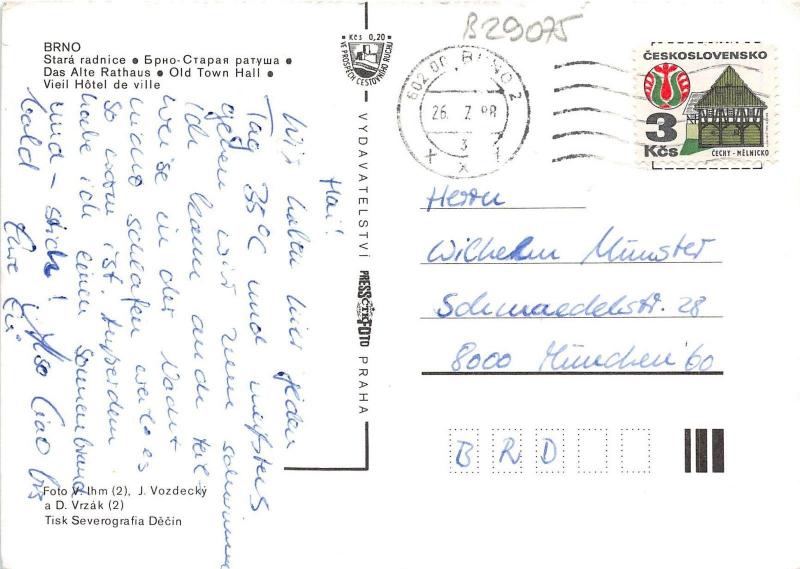 B29075
BRNO
Stará radnice • Брно-Старая ратуша •
Das Alte Rathaus • Old Town Hall •
Vieil Hôtel de ville
Kčs 0,20
VE PROSPĚCH CESTOVNÍHO RUCHU
Hai!
Wir haben hier jeden
Tag 35°C und meistens
gehen wir zum schwimmen
ich kann auch teil-
weise in der Nacht
nicht schlafen weil es
so warm ist. Außerdem
habe ich einen Sonnenbrand
und - stich! Also Ciao bis
bald Eure
VYDAVATELSTVÍ PRESSFOTO PRAHA
ČTK
602 00 BRNO 2
26. 7. 88
ČESKOSLOVENSKO
3
Kčs
ČECHY - MĚLNICKO
Herrn
Wilhelm Münster
Schmaedelstr. 28
8000 München 60
B R D
Foto V. Ihm (2), J. Vozdecký
a D. Vrzák (2)
Tisk Severografia Děčín